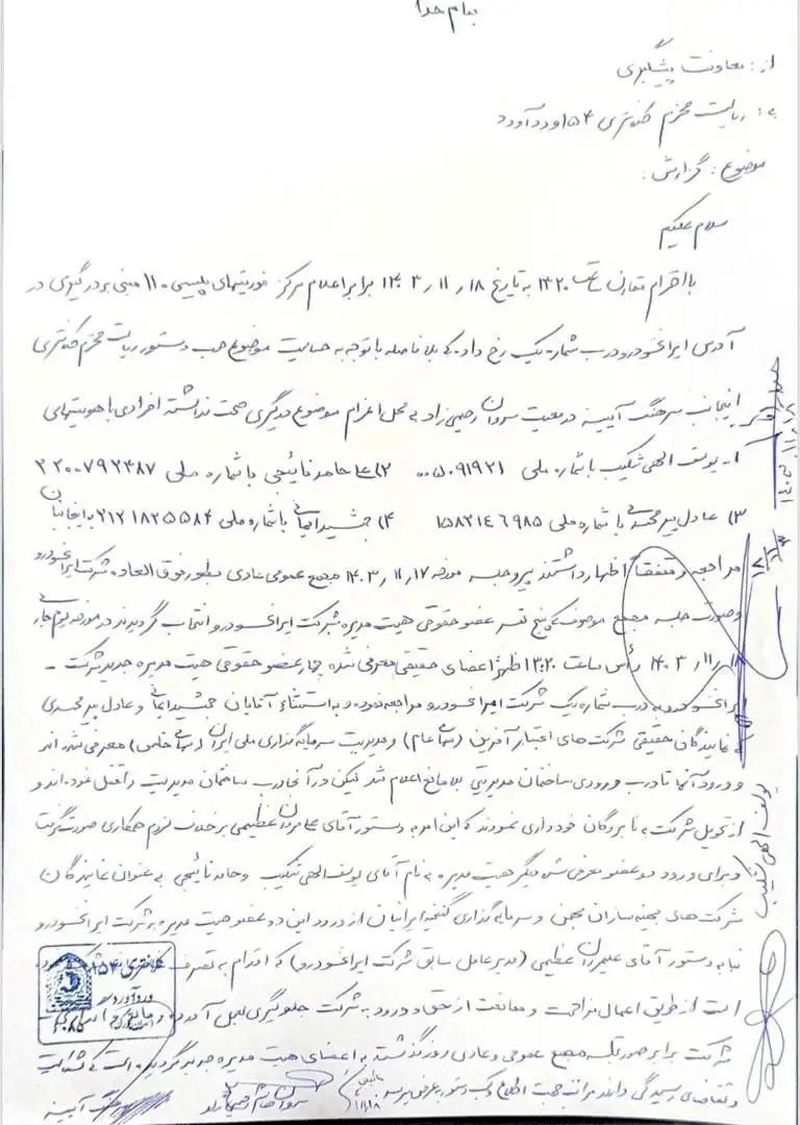 بنام خدا
از: معاونت پیشگیری
به: ریاست محترم کلانتری ۱۵۴ وردآورد
موضوع: گزارش:
سلام علیکم
بااحترام مقارن ساعت ۱۳:۲۰ به تاریخ ۱۴۰۳/۱۱/۱۸ برابر اعلام مرکز فوریتهای پلیسی ۱۱۰ مبنی بر درگیری در
آدرس ایرانخودرو درب شماره یک رخ داده که بلافاصله با توجه به حساسیت موضوع حسب دستور ریاست محترم کلانتری
اینجانب سرهنگ آیینه در معیت سروان رحیمی زاد به محل اعزام موضوع درگیری صحت نداشته افرادی با هویتهای
۱- یوسف الهی شکیب با شماره ملی ۰۰۵۰۹۱۹۲۱ ۲) حامد فائیجی با شماره ملی ۳۲۰۰۷۹۲۳۸۷
۳) عادل پیرمحمدی با شماره ملی ۱۵۸۲۱۴۶۹۸۵ ۴) جمشید ایمانی با شماره ملی ۲۱۲۱۸۲۵۵۸۴ به اینجانبان
مراجعه و متفقاً اظهار داشتند پیرو جلسه مورخه ۱۴۰۳/۱۱/۱۷ مجمع عمومی عادی بطور فوق العاده شرکت ایرانخودرو
و صورت جلسه مجمع موصوف که پنج نفر عضو حقوقی هیت مدیره شرکت ایرانخودرو انتخاب گردیدند در مورخه یوم جاری
۱۴۰۳/۱۱/۱۸ رأس ساعت ۱۳:۲۰ ظهر اعضای حقیقی معرفی شده چهار عضو حقوقی هیت مدیره جدید شرکت -
ایرانخودرو به درب شماره یک شرکت ایرانخودرو مراجعه نموده و به استثناء آقایان جمشید ایمانی و عادل پیرمحمدی
که نمایندگان حقیقی شرکت های اعتبار آفرین (سهامی عام) و مدیریت سرمایه گذاری ملی ایران (سهامی خاص) معرفی شده اند
و ورود آنها تا درب ورودی ساختمان مدیریتی بلامانع اعلام شد لیکن در آنجا درب ساختمان مدیریت را قفل نموده اند و
از تحویل شرکت به نامبردگان خودداری نمودند که این امر به دستور آقای علیمردان عظیمی بر خلاف لزوم همکاری صورت گرفت
و برای ورود دو عضو معرفی شده دیگر هیت مدیره به نام آقای یوسف الهی شکیب و حامد فائیجی به عنوان نمایندگان
شرکت های بهینه سازان بهمن و سرمایه گذاری گنجینه ایرانیان از ورود این دو عضو هیت مدیره به شرکت ایرانخودرو
بنا به دستور آقای علیمردان عظیمی (مدیر عامل سابق شرکت ایرانخودرو) که اقدام به تصرف
است از طریق اعمال مزاحمت و ممانعت از حق و ورود به شرکت جلوگیری بعمل آمده و مانع
شرکت برابر صورتجلسه مجمع عمومی و عادی روز گذشته به اعضای هیت مدیره جدید گردیده است که شکایت
و تقاضای رسیدگی دارند مراتب جهت اطلاع و کسب دستور به عرض میرسد
سروان رحیمی زاد
سرهنگ آیینه
کلانتری ۱۵۴
وردآورد
یوسف الهی شکیب
۱۴۰۳/۱۱/۱۸